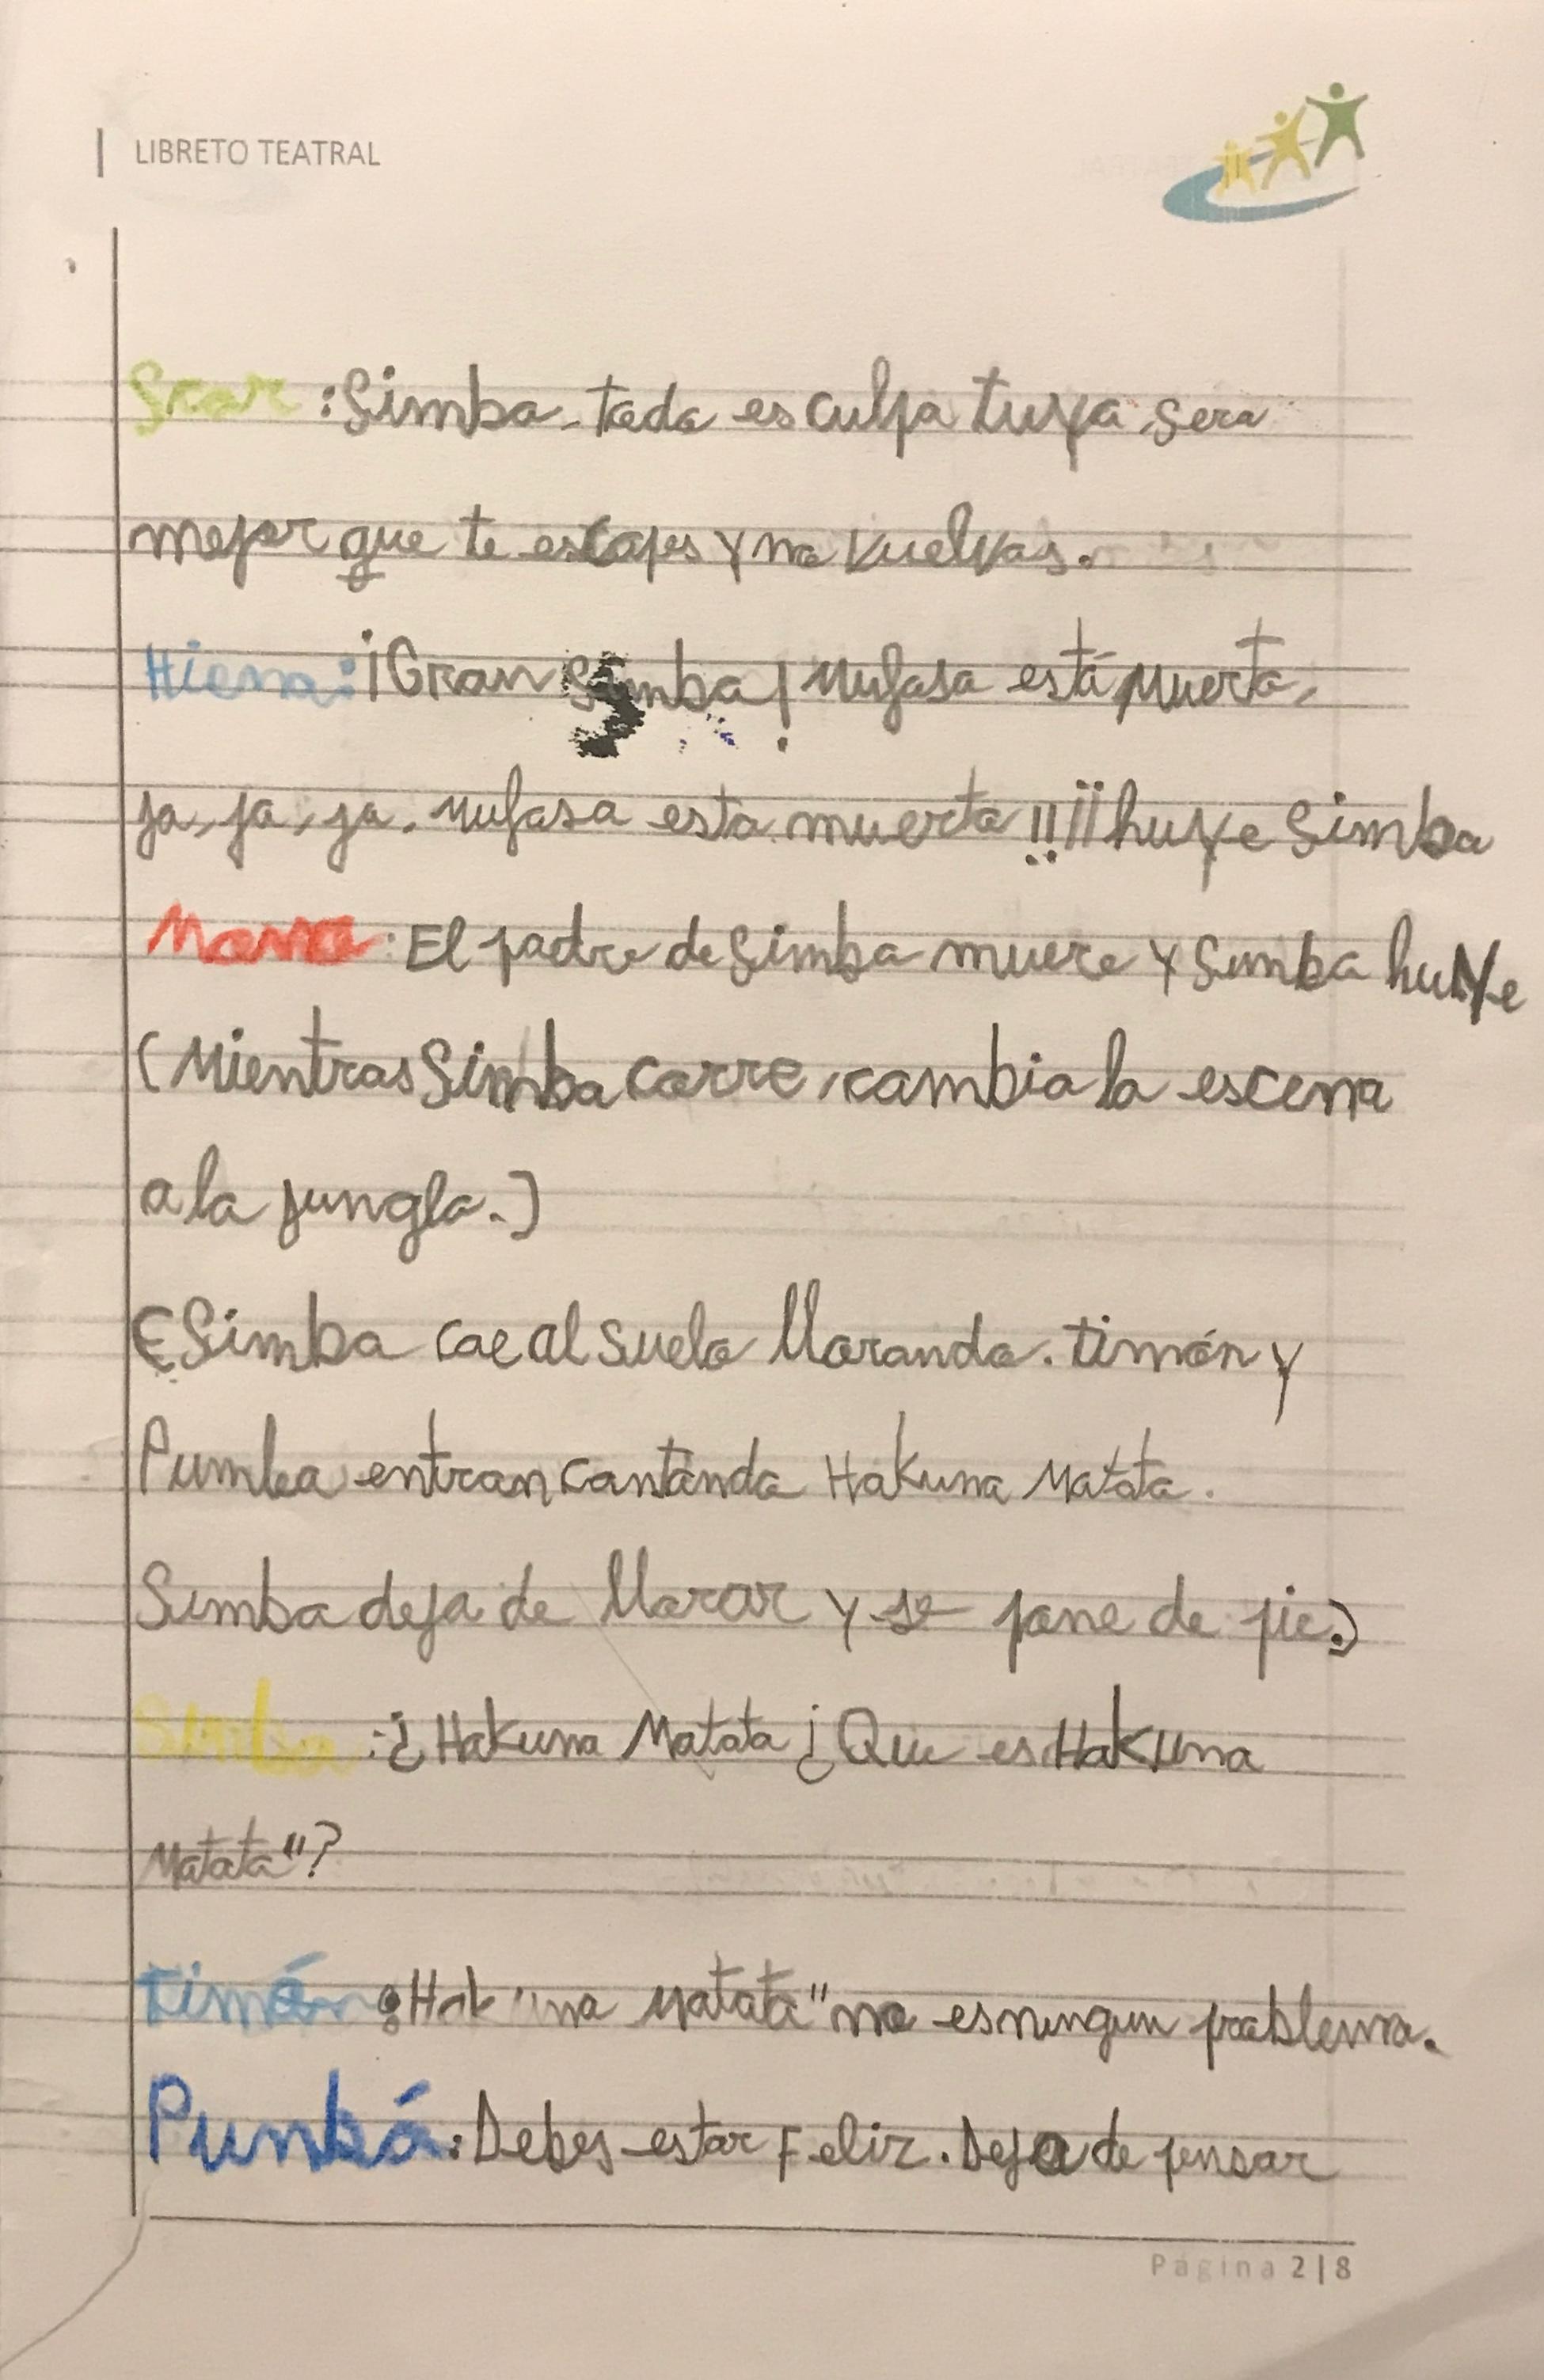 LIBRETO TEATRAL
Scar: Simba, todo es culpa tuya, sera
mejor que te escapes y no vuelvas.
Hiena: ¡Gran Simba! Mufasa está Muerto,
ja, ja, ja. Mufasa esta muerto!! ¡¡huye Simba
Mono: El padre de Simba muere y Simba huye
(Mientras Simba corre, cambia la escena
a la jungla.)
(Simba cae al suelo llorando. timón y
Pumba entran cantando Hakuna Matata.
Simba deja de llorar y se pone de pie.)
Simba: ¿Hakuna Matata ¿Que es Hakuna
Matata"?
timón: Hakuna Matata" no es ningun problema.
Punbá: Debes estar Feliz. Deja de pensar
Página 2|8